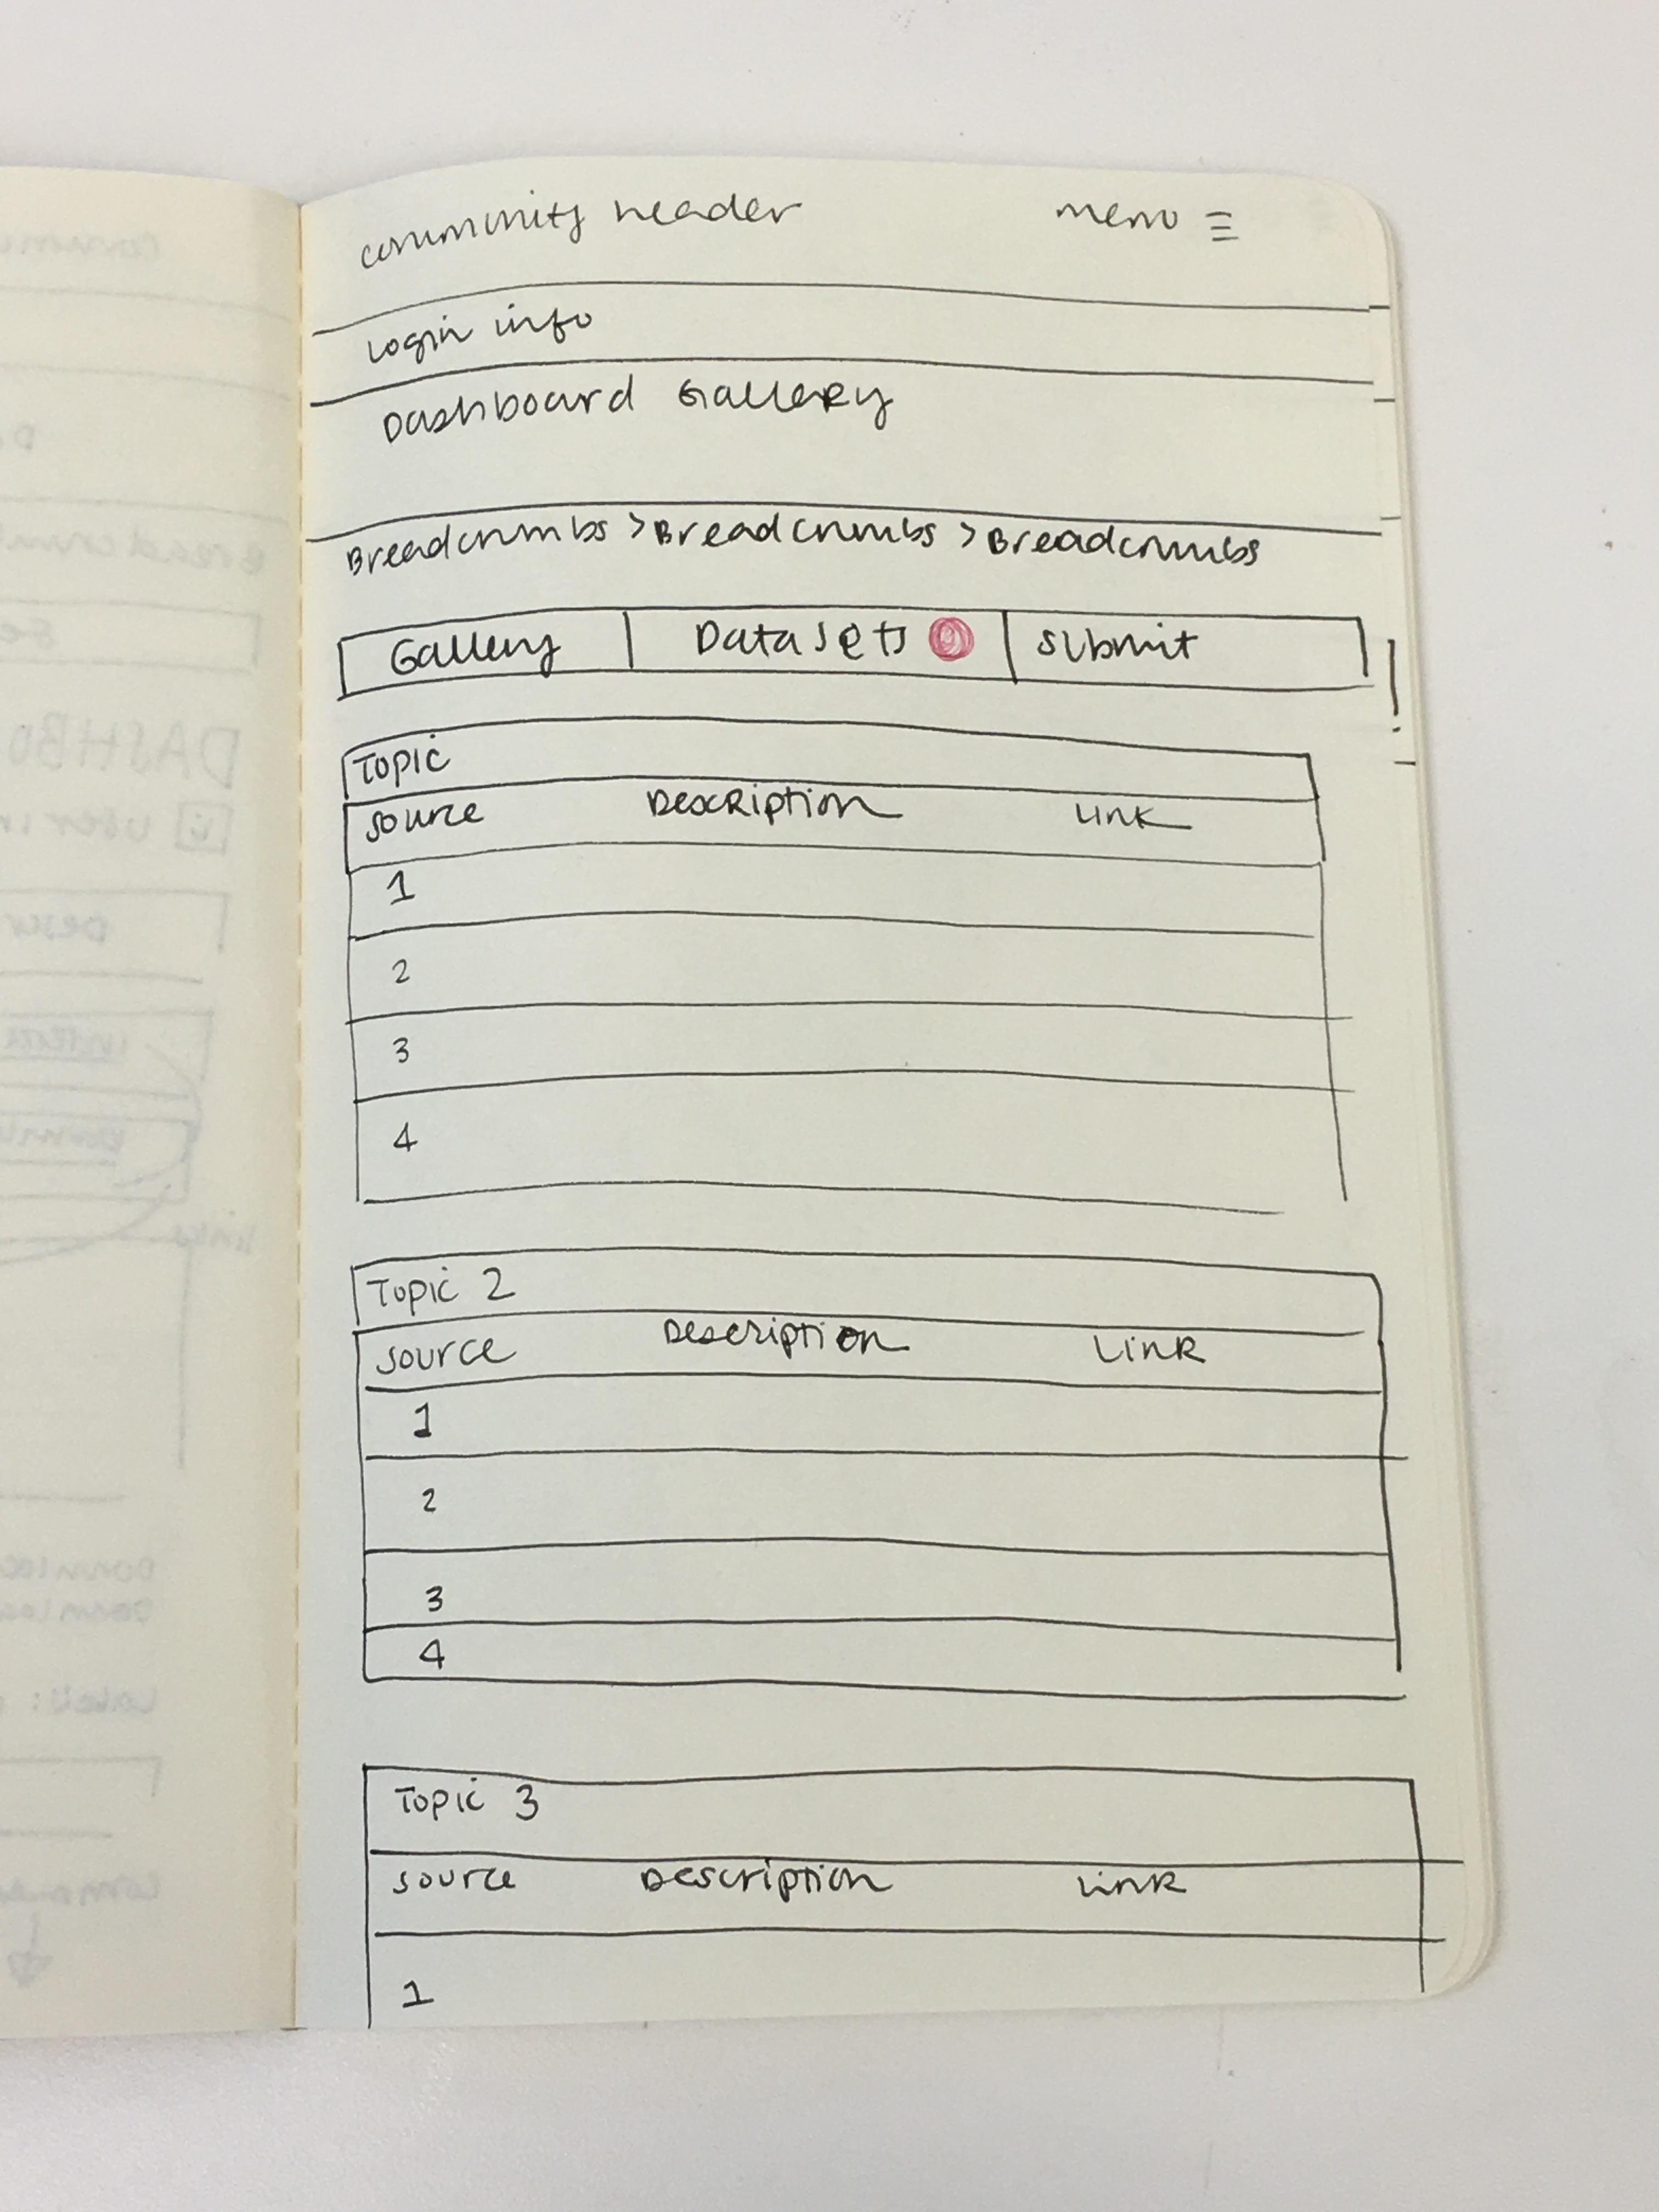 community header menu
Login info
Dashboard Gallery
Breadcrumbs > Breadcrumbs > Breadcrumbs
Gallery Datasets Submit
Topic
Source Description Link
1
2
3
4
Topic 2
Source Description Link
1
2
3
4
Topic 3
Source Description Link
1